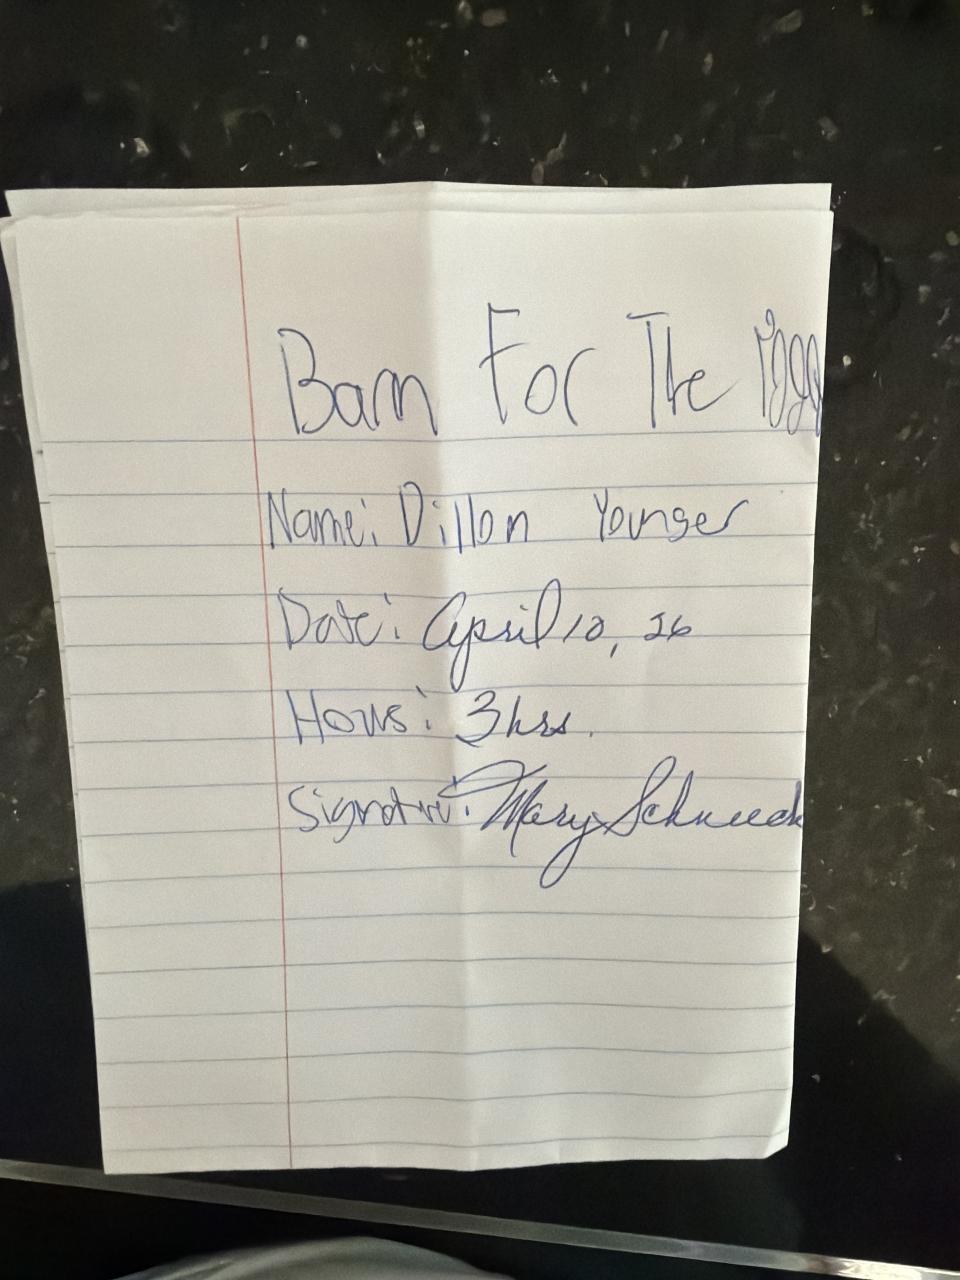 Barn For The Piggs
Name: Dillon Younger
Date: April 10, 26
Hours: 3 hrs.
Signature: Mary Schnuck